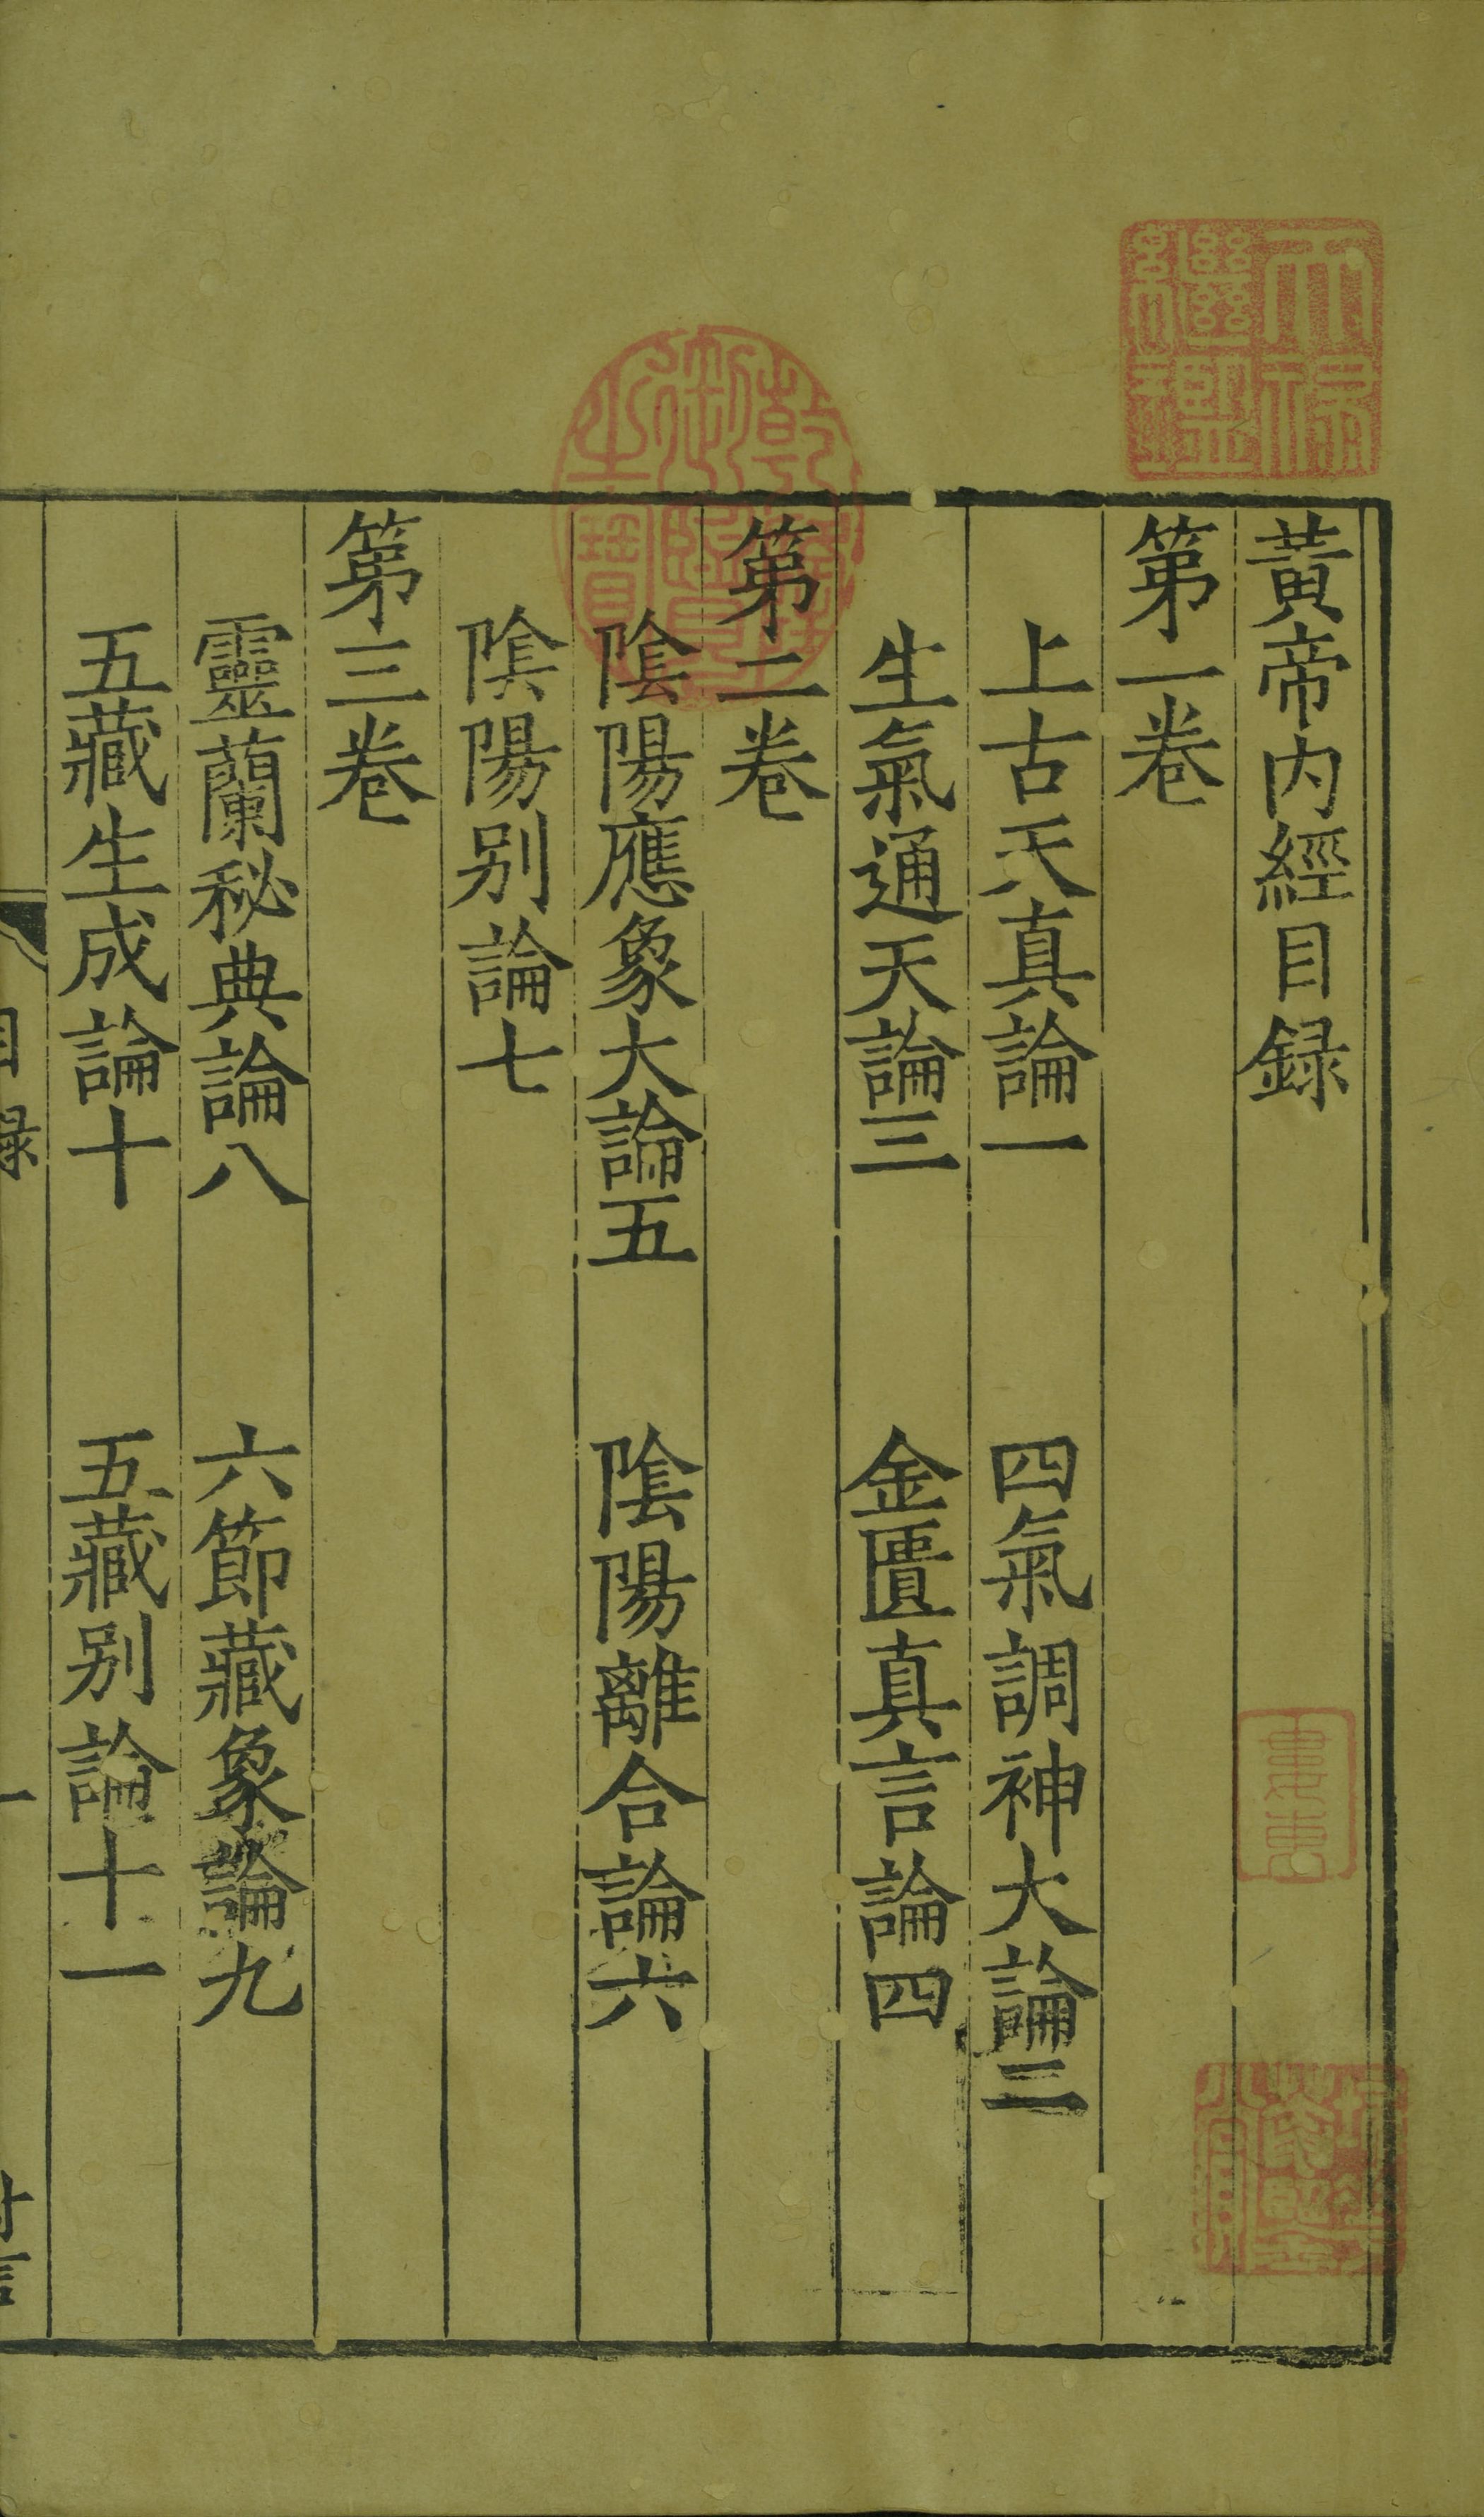 黃帝内經目録
第一卷
上古天真論一 四氣調神大論二
生氣通天論三 金匱真言論四
第二卷
陰陽應象大論五 陰陽離合論六
陰陽别論七
第三卷
靈蘭秘典論八 六節藏象論九
五藏生成論十 五藏别論十一
目録
一
天祿繼鑑
乾隆御覽之寶